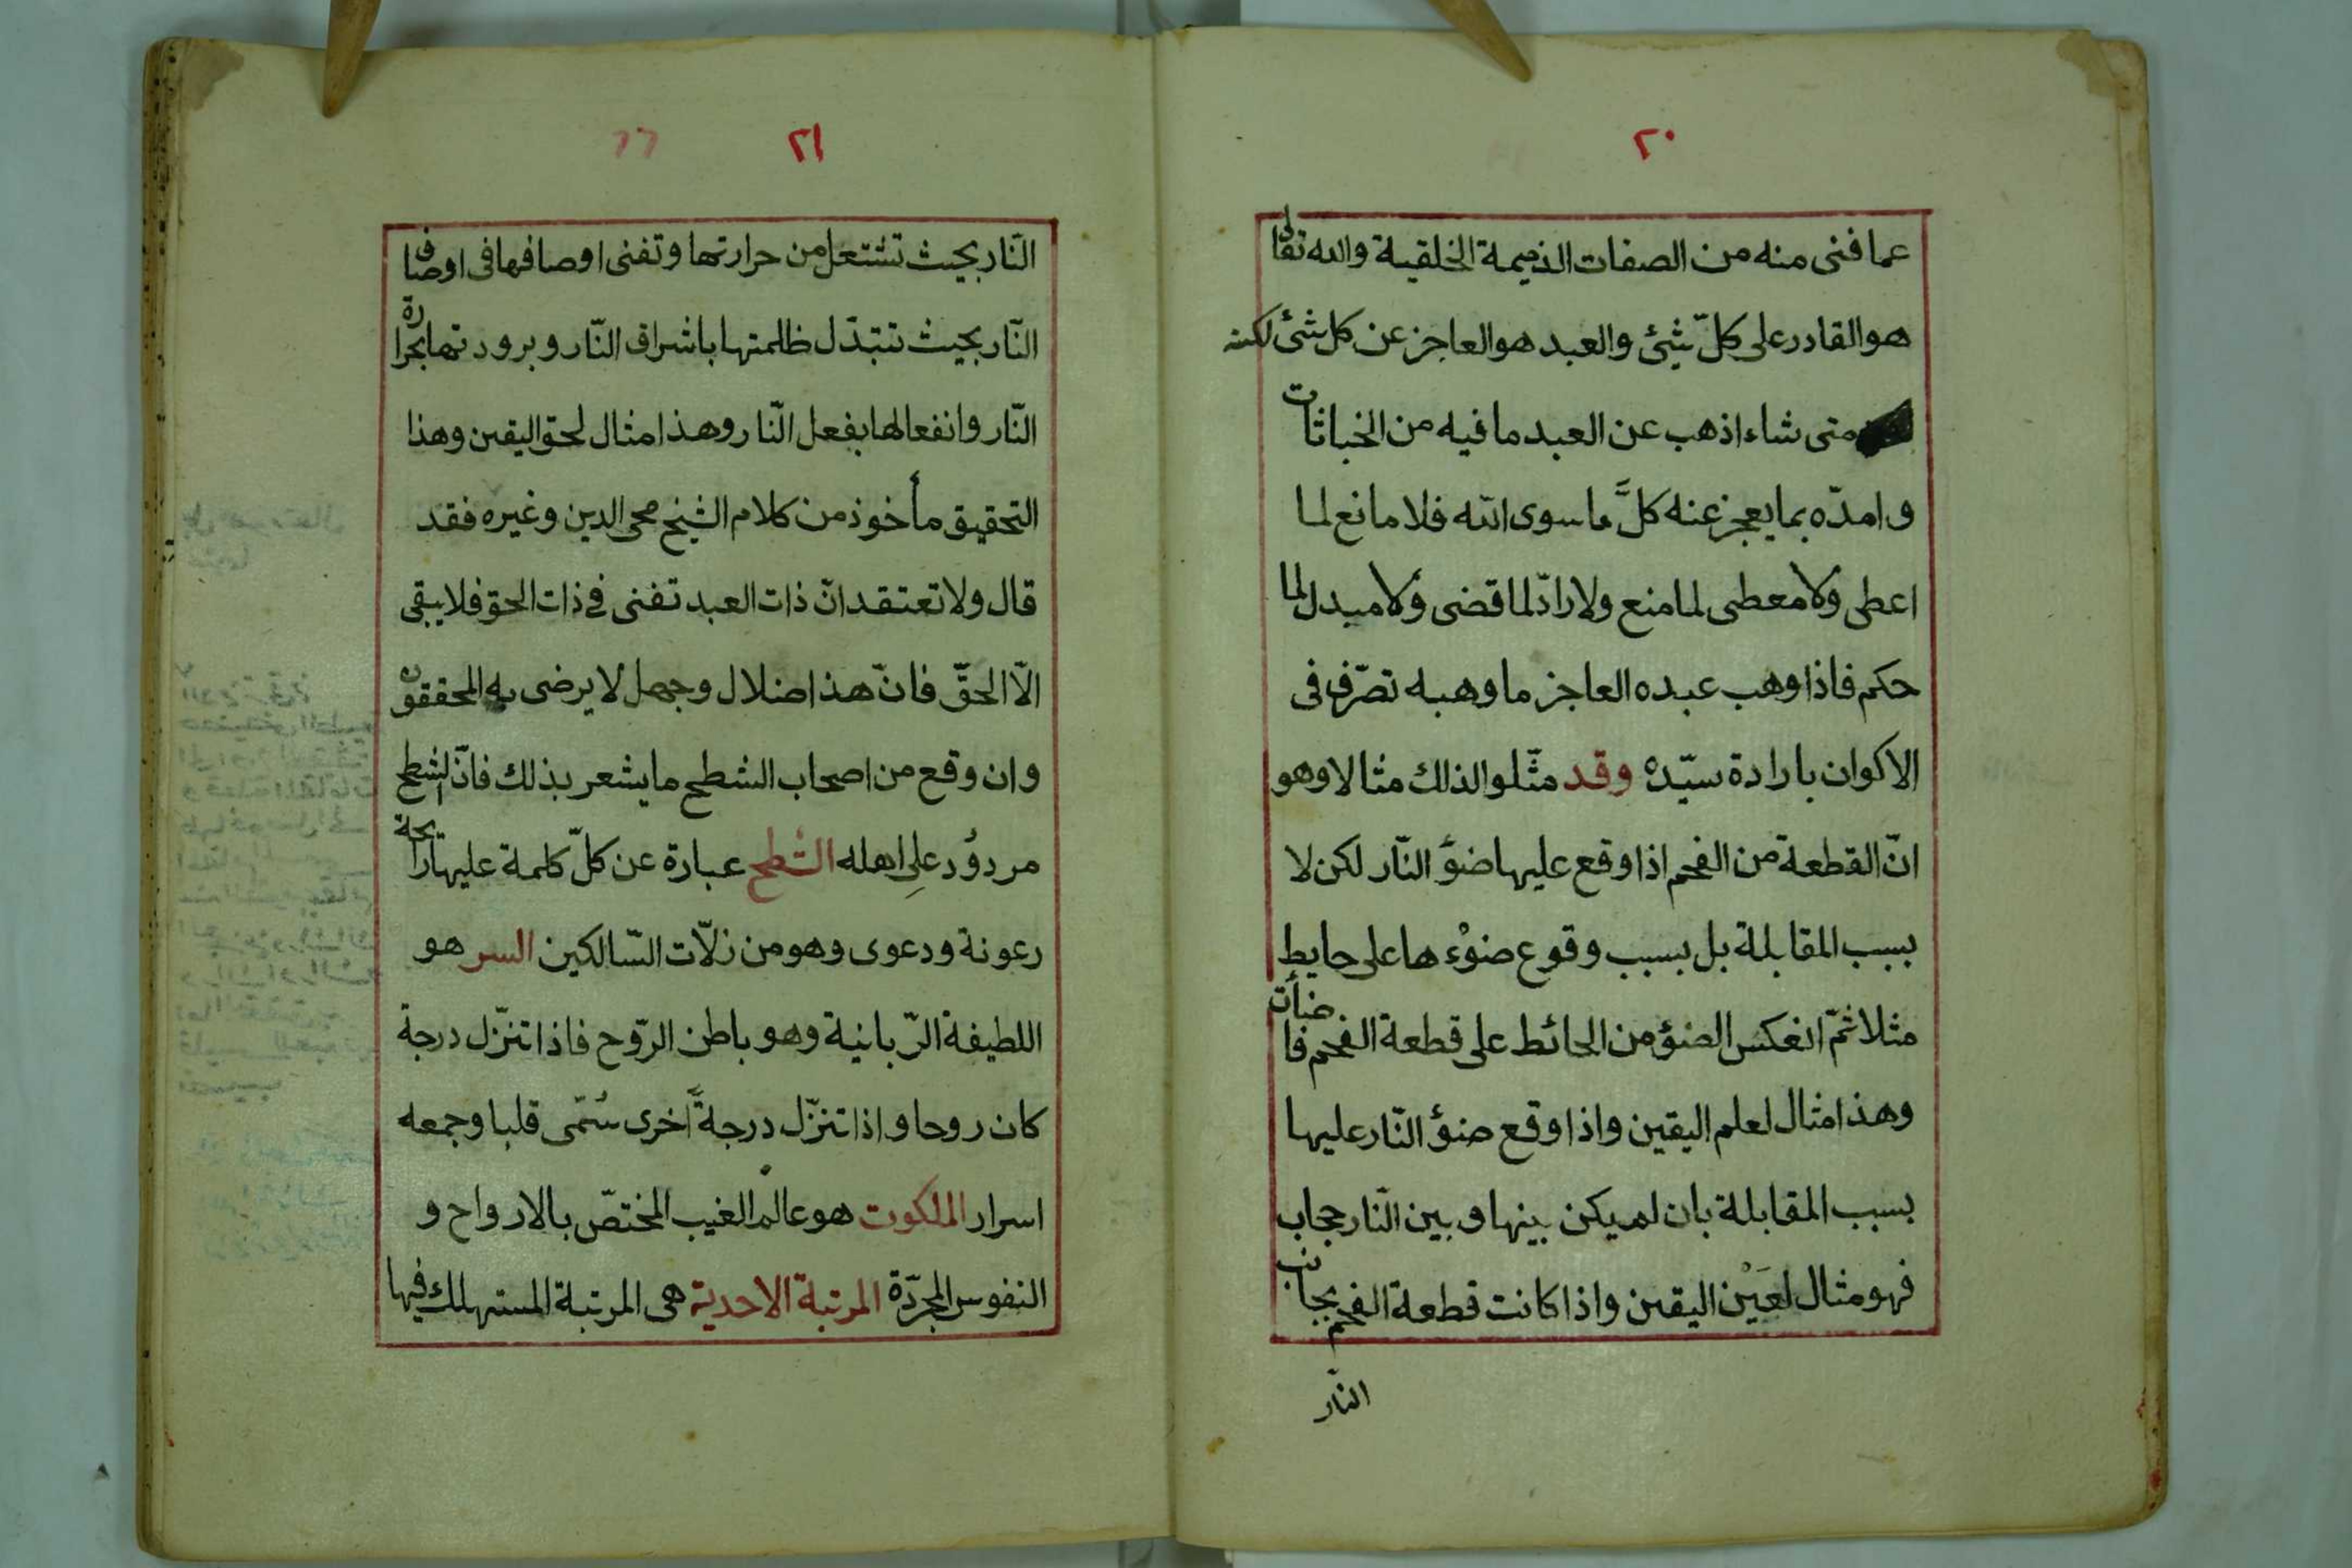 ٢٠
عما فنى منه من الصفات الذميمة الخلقية والله تعالى
هو القادر على كلّ شئ والعبد هو العاجز عن كل شئ لكنه
متى شاء اذهب عن العبد ما فيه من الخباثات
وامدّه بما يعجز عنه كلّ ما سوى الله فلا مانع لما
اعطى ولا معطى لما منع ولا رادّ لما قضى ولا مبدل لما
حكم فاذا وهب عبده العاجز ما وهبه تصرّف فى
الاكوان بارادة سيّده وقد مثّلوا لذلك مثالا وهو
انّ القطعة من الفحم اذا وقع عليها ضؤ النّار لكن لا
بسبب المقابلة بل بسبب وقوع ضوْءها على حايط
مثلا ثمّ انعكس الضؤ من الحائط على قطعة الفحم فاضأت
وهذا مثال لعلم اليقين واذا وقع ضؤ النّار عليها
بسبب المقابلة بان لم يكن بينها وبين النّار حجاب
فهو مثال لعَيْن اليقين واذا كانت قطعة الفحم بجانب
النّار
٢١
النّار بحيث تشتعل من حرارتها وتفنى اوصافها فى اوصاف
النّار بحيث تتبدّل ظلمتها باشراق النّار وبرودتها بحرارة
النّار وانفعالها بفعل النّار وهذا مثال لحق اليقين وهذا
التحقيق مأخوذ من كلام الشيخ محى الدين وغيره فقد
قال ولا تعتقد انّ ذات العبد تفنى فى ذات الحق فلا يبقى
الّا الحقّ فانّ هذا ضلال وجهل لا يرضى به المحققون
وان وقع من اصحاب الشطح ما يشعر بذلك فانّ الشطح
مردؤد على اهله الشطح عبارة عن كلّ كلمة عليها رايحة
رعونة ودعوى وهو من زلّات السّالكين السر هو
اللطيفة الرّبانية وهو باطن الرّوح فاذا تنزّل درجة
كان روحا واذا تنزّل درجةً اخرى سُمّى قلبا وجمعه
اسرار الملكوت هو عالم الغيب المختصّ بالارواح و
النفوس المجرّدة المرتبة الاحدية هى المرتبة المستهلك فيها